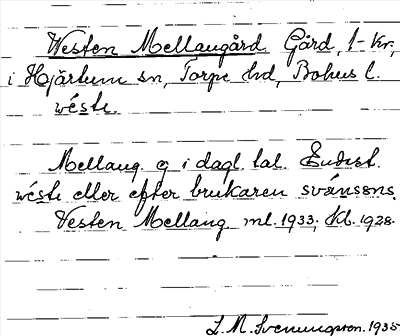 Vesten Mellangård Gård, 1 kr,
i Hjärtum sn, Torpe hd, Bohus l.
wéstn.
Mellang. ej i dagl. tal. Endast
wéstn eller efter brukaren svänssns.
Vesten Mellang ml. 1933; Kb. 1928.
L. M. Svenungsson. 1935